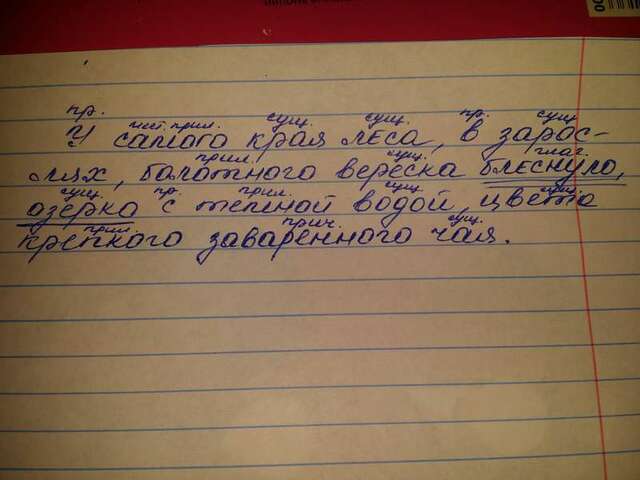 пр. мест. прил. сущ. сущ. пр. сущ.
У самого края леса, в зарос-
прил. сущ. глаг.
лях, болотного вереска блеснуло,
сущ. пр. прил. сущ. сущ.
озерко с темной водой, цвета
прил. прич. сущ.
крепкого заваренного чая.